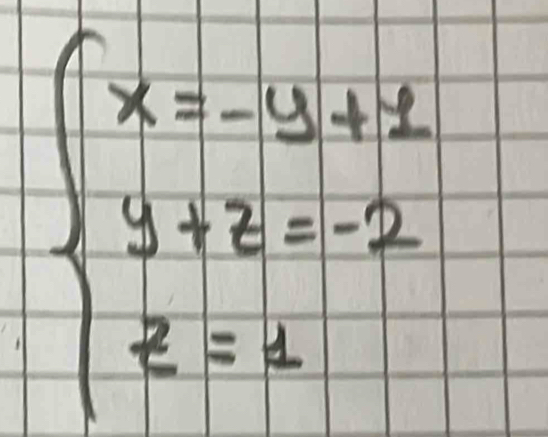 x = -y + 1
y + z = -2
z = 1